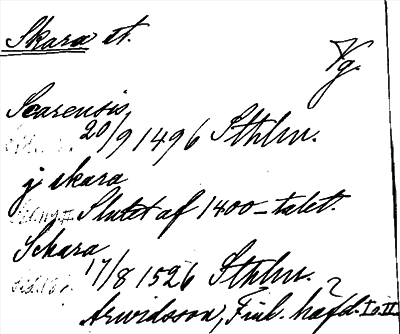 Skara st. Vg.
Scarensis
20/9 1496 Sthlm.
j skara
Slutet af 1400-talet.
Sckara
17/8 1526 Sthlm.
Arwidsson, Finl. häfd. I o. II